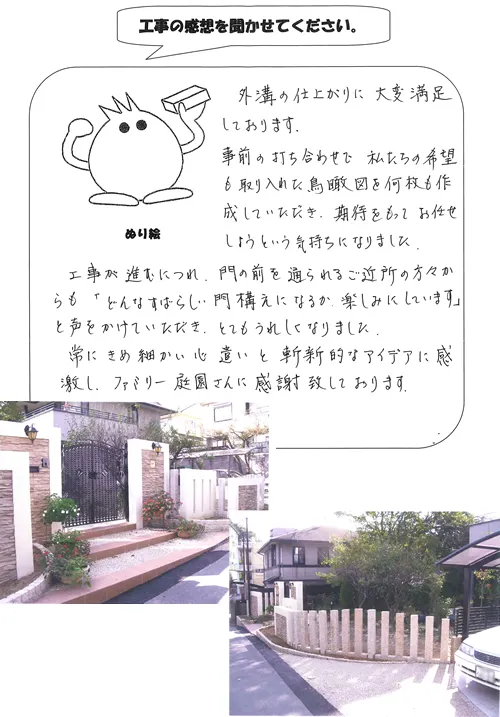 工事の感想を聞かせてください。
外溝の仕上がりに大変満足
しております.
事前の打ち合わせで 私たちの希望
も取り入れた鳥瞰図を何枚も作
成していただき. 期待をもってお任せ
しようという気持ちになりました.
ぬり絵
工事が進むにつれ. 門の前を通られるご近所の方々か
らも「どんなすばらしい門構えになるか. 楽しみにしています」
と声をかけていただき. とてもうれしくなりました.
常にきめ細かい心遣いと斬新的なアイデアに感
激し. ファミリー庭園さんに感謝致しております.